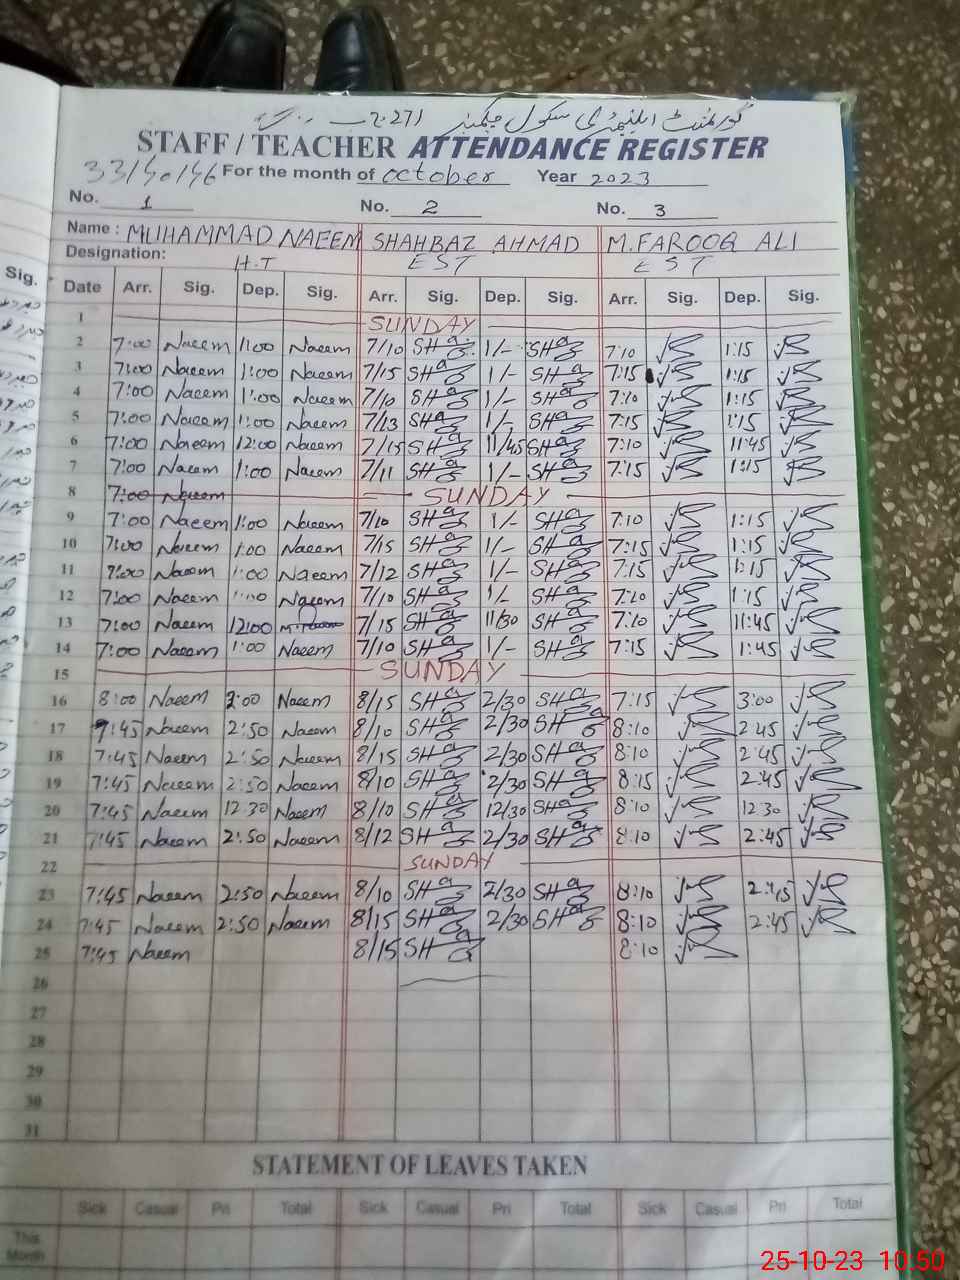 گورنمنٹ ایلیمنٹری سکول چک نمبر 271 ج ب
STAFF / TEACHER ATTENDANCE REGISTER
33/40/46 For the month of October Year 2023
No. 1 No. 2 No. 3
Name : MUHAMMAD NAEEM SHAHBAZ AHMAD M.FAROOQ ALI
Designation: H.T EST EST
Sig.
Date Arr. Sig. Dep. Sig. Arr. Sig. Dep. Sig. Arr. Sig. Dep. Sig.
1 SUNDAY
2 7:00 Naeem 1:00 Naeem 7/10 SH 1/- SH 7:10 1:15
3 7:00 Naeem 1:00 Naeem 7/15 SH 1/- SH 7:15 1:15
4 7:00 Naeem 1:00 Naeem 7/10 SH 1/- SH 7:10 1:15
5 7:00 Naeem 1:00 Naeem 7/13 SH 1/- SH 7:15 1:15
6 7:00 Naeem 12:00 Naeem 7/15 SH 11/45 SH 7:10 11:45
7 7:00 Naeem 1:00 Naeem 7/11 SH 1/- SH 7:15 1:15
8 7:00 Naeem SUNDAY
9 7:00 Naeem 1:00 Naeem 7/10 SH 1/- SH 7:10 1:15
10 7:00 Naeem 1:00 Naeem 7/15 SH 1/- SH 7:15 1:15
11 7:00 Naeem 1:00 Naeem 7/12 SH 1/- SH 7:15 1:15
12 7:00 Naeem 1:00 Naeem 7/10 SH 1/- SH 7:10 1:15
13 7:00 Naeem 12:00 7/15 SH 11/30 SH 7:10 11:45
14 7:00 Naeem 1:00 Naeem 7/10 SH 1/- SH 7:15 1:45
15 SUNDAY
16 8:00 Naeem 3:00 Naeem 8/15 SH 2/30 SH 7:15 3:00
17 7:45 Naeem 2:50 Naeem 8/10 SH 2/30 SH 8:10 2:45
18 7:45 Naeem 2:50 Naeem 8/15 SH 2/30 SH 8:10 2:45
19 7:45 Naeem 2:50 Naeem 8/10 SH 2/30 SH 8:15 2:45
20 7:45 Naeem 12:30 Naeem 8/10 SH 12/30 SH 8:10 12:30
21 7:45 Naeem 2:50 Naeem 8/12 SH 2/30 SH 8:10 2:45
22 SUNDAY
23 7:45 Naeem 2:50 Naeem 8/10 SH 2/30 SH 8:10 2:45
24 7:45 Naeem 2:50 Naeem 8/15 SH 2/30 SH 8:10 2:45
25 7:45 Naeem 8/15 SH 8:10
26
27
28
29
30
31
STATEMENT OF LEAVES TAKEN
Sick Casual Pri Total Sick Casual Pri Total Sick Casual Pri Total
This Month
25-10-23 10:50